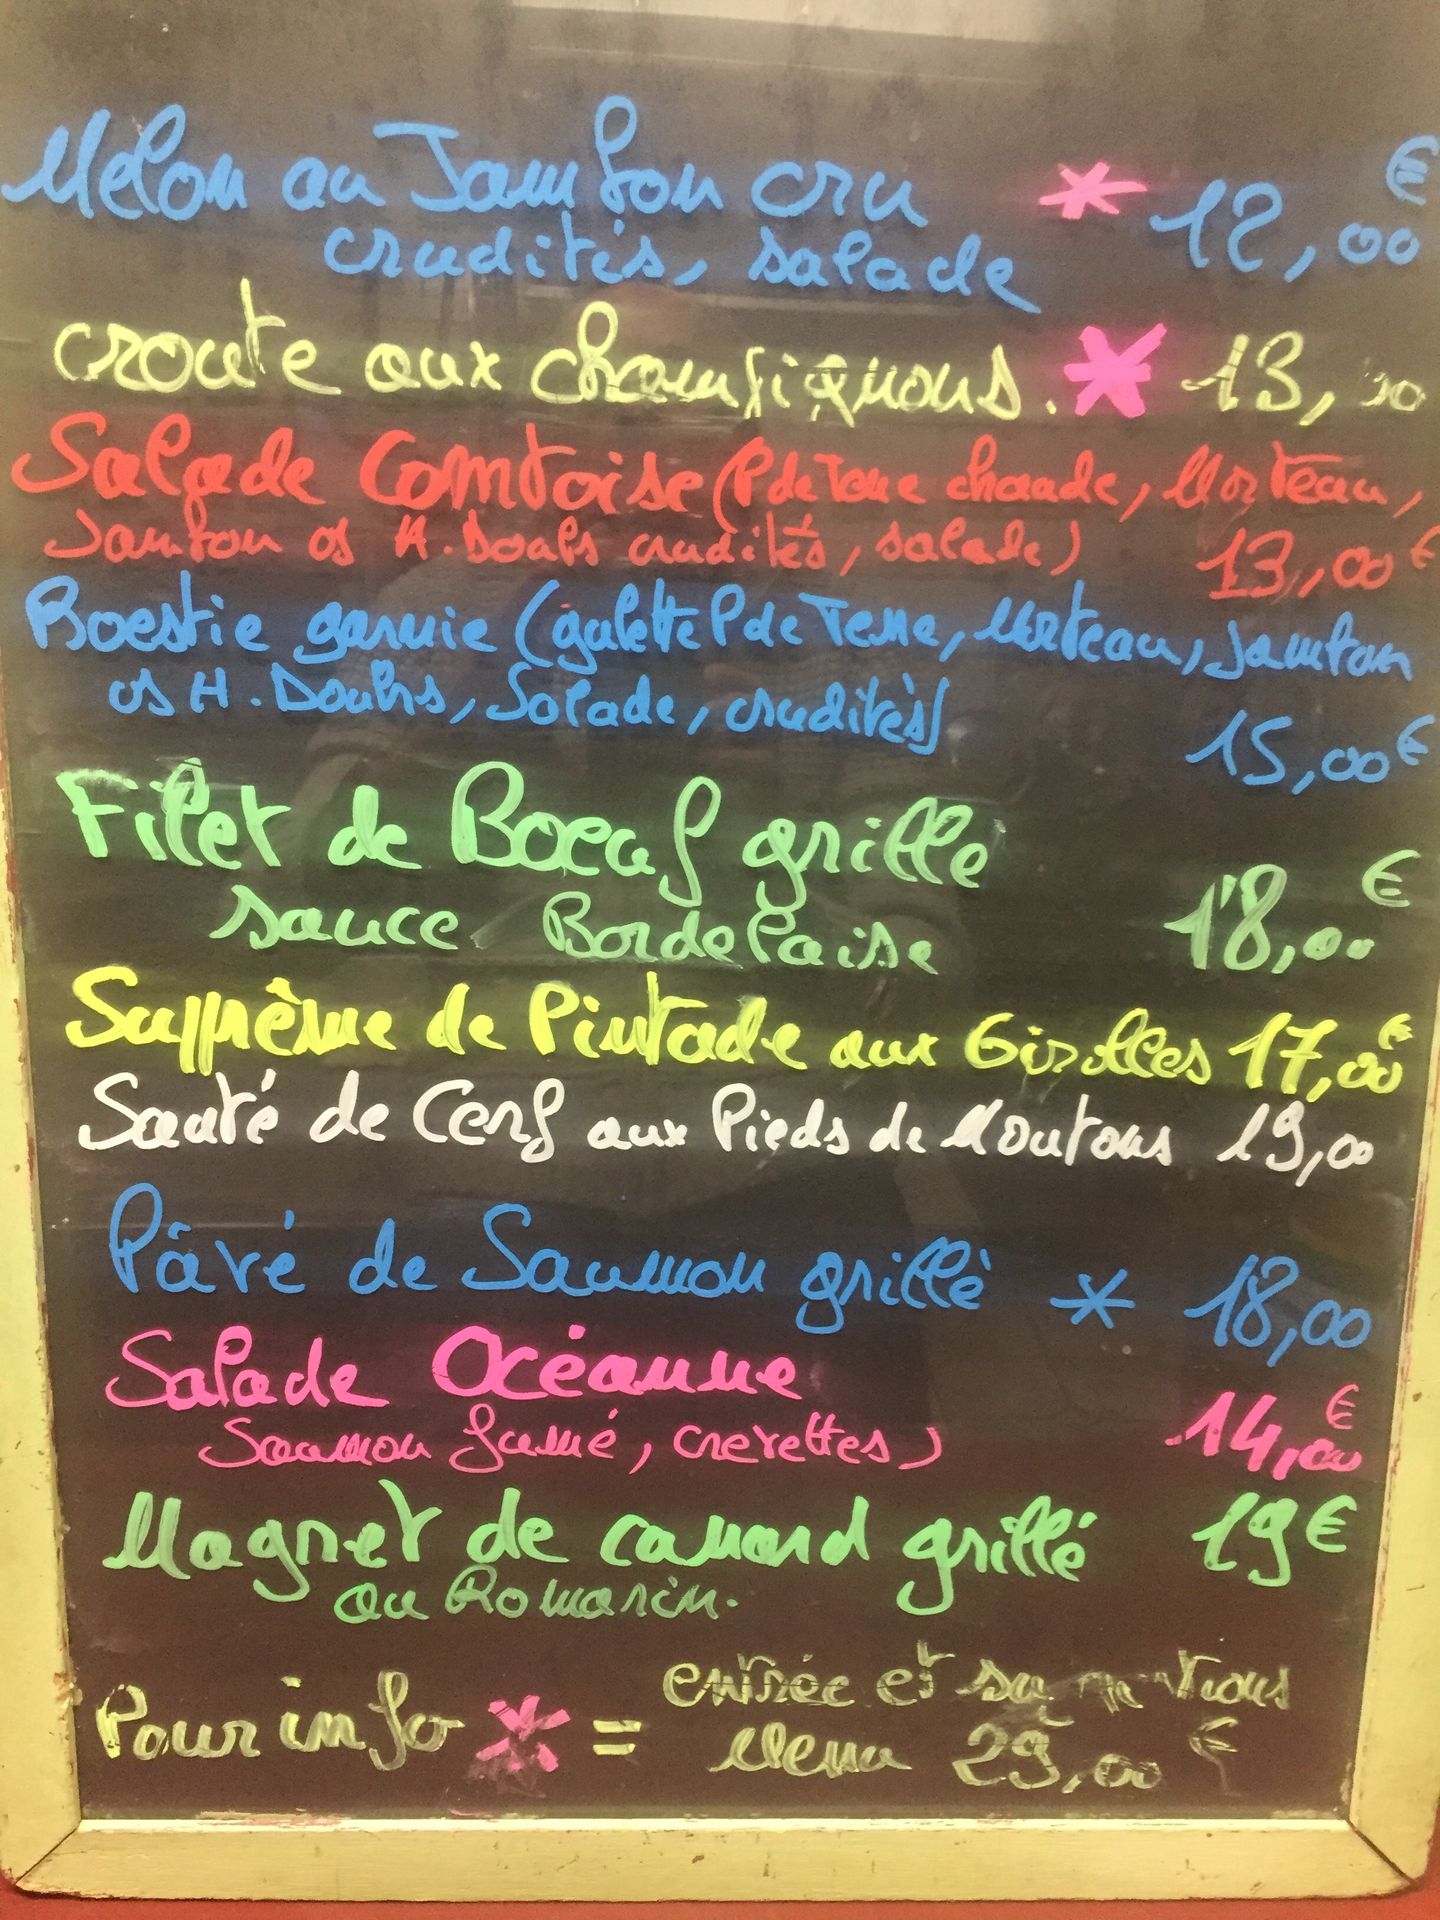 Melon au Jambon cru * 12,00 €
crudités, salade
croute aux champignons. * 13,00
Salade Comtoise (P de Terre chaude, Morteau,
Jambon os H. Doubs crudités, salade) 13,00 €
Roestie garnie (galette P de Terre, Morteau, Jambon
os H. Doubs, Salade, crudités) 15,00 €
Filet de Boeuf grillé
sauce Bordelaise 18,00 €
Suprême de Pintade aux Girolles 17,00 €
Sauté de Cerf aux Pieds de Moutons 19,00
Pâvé de Saumon grillé * 18,00
Salade Océanne
Saumon fumé, crevettes) 14,00 €
Magret de canard grillé 19 €
au Romarin.
Pour info * = entrée et
Menu 29,00 €